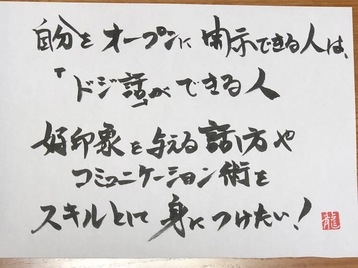 自分をオープンに開示できる人は、
「ドジ話」ができる人
好印象を与える話し方や
コミュニケーション術を
スキルとして身につけたい！